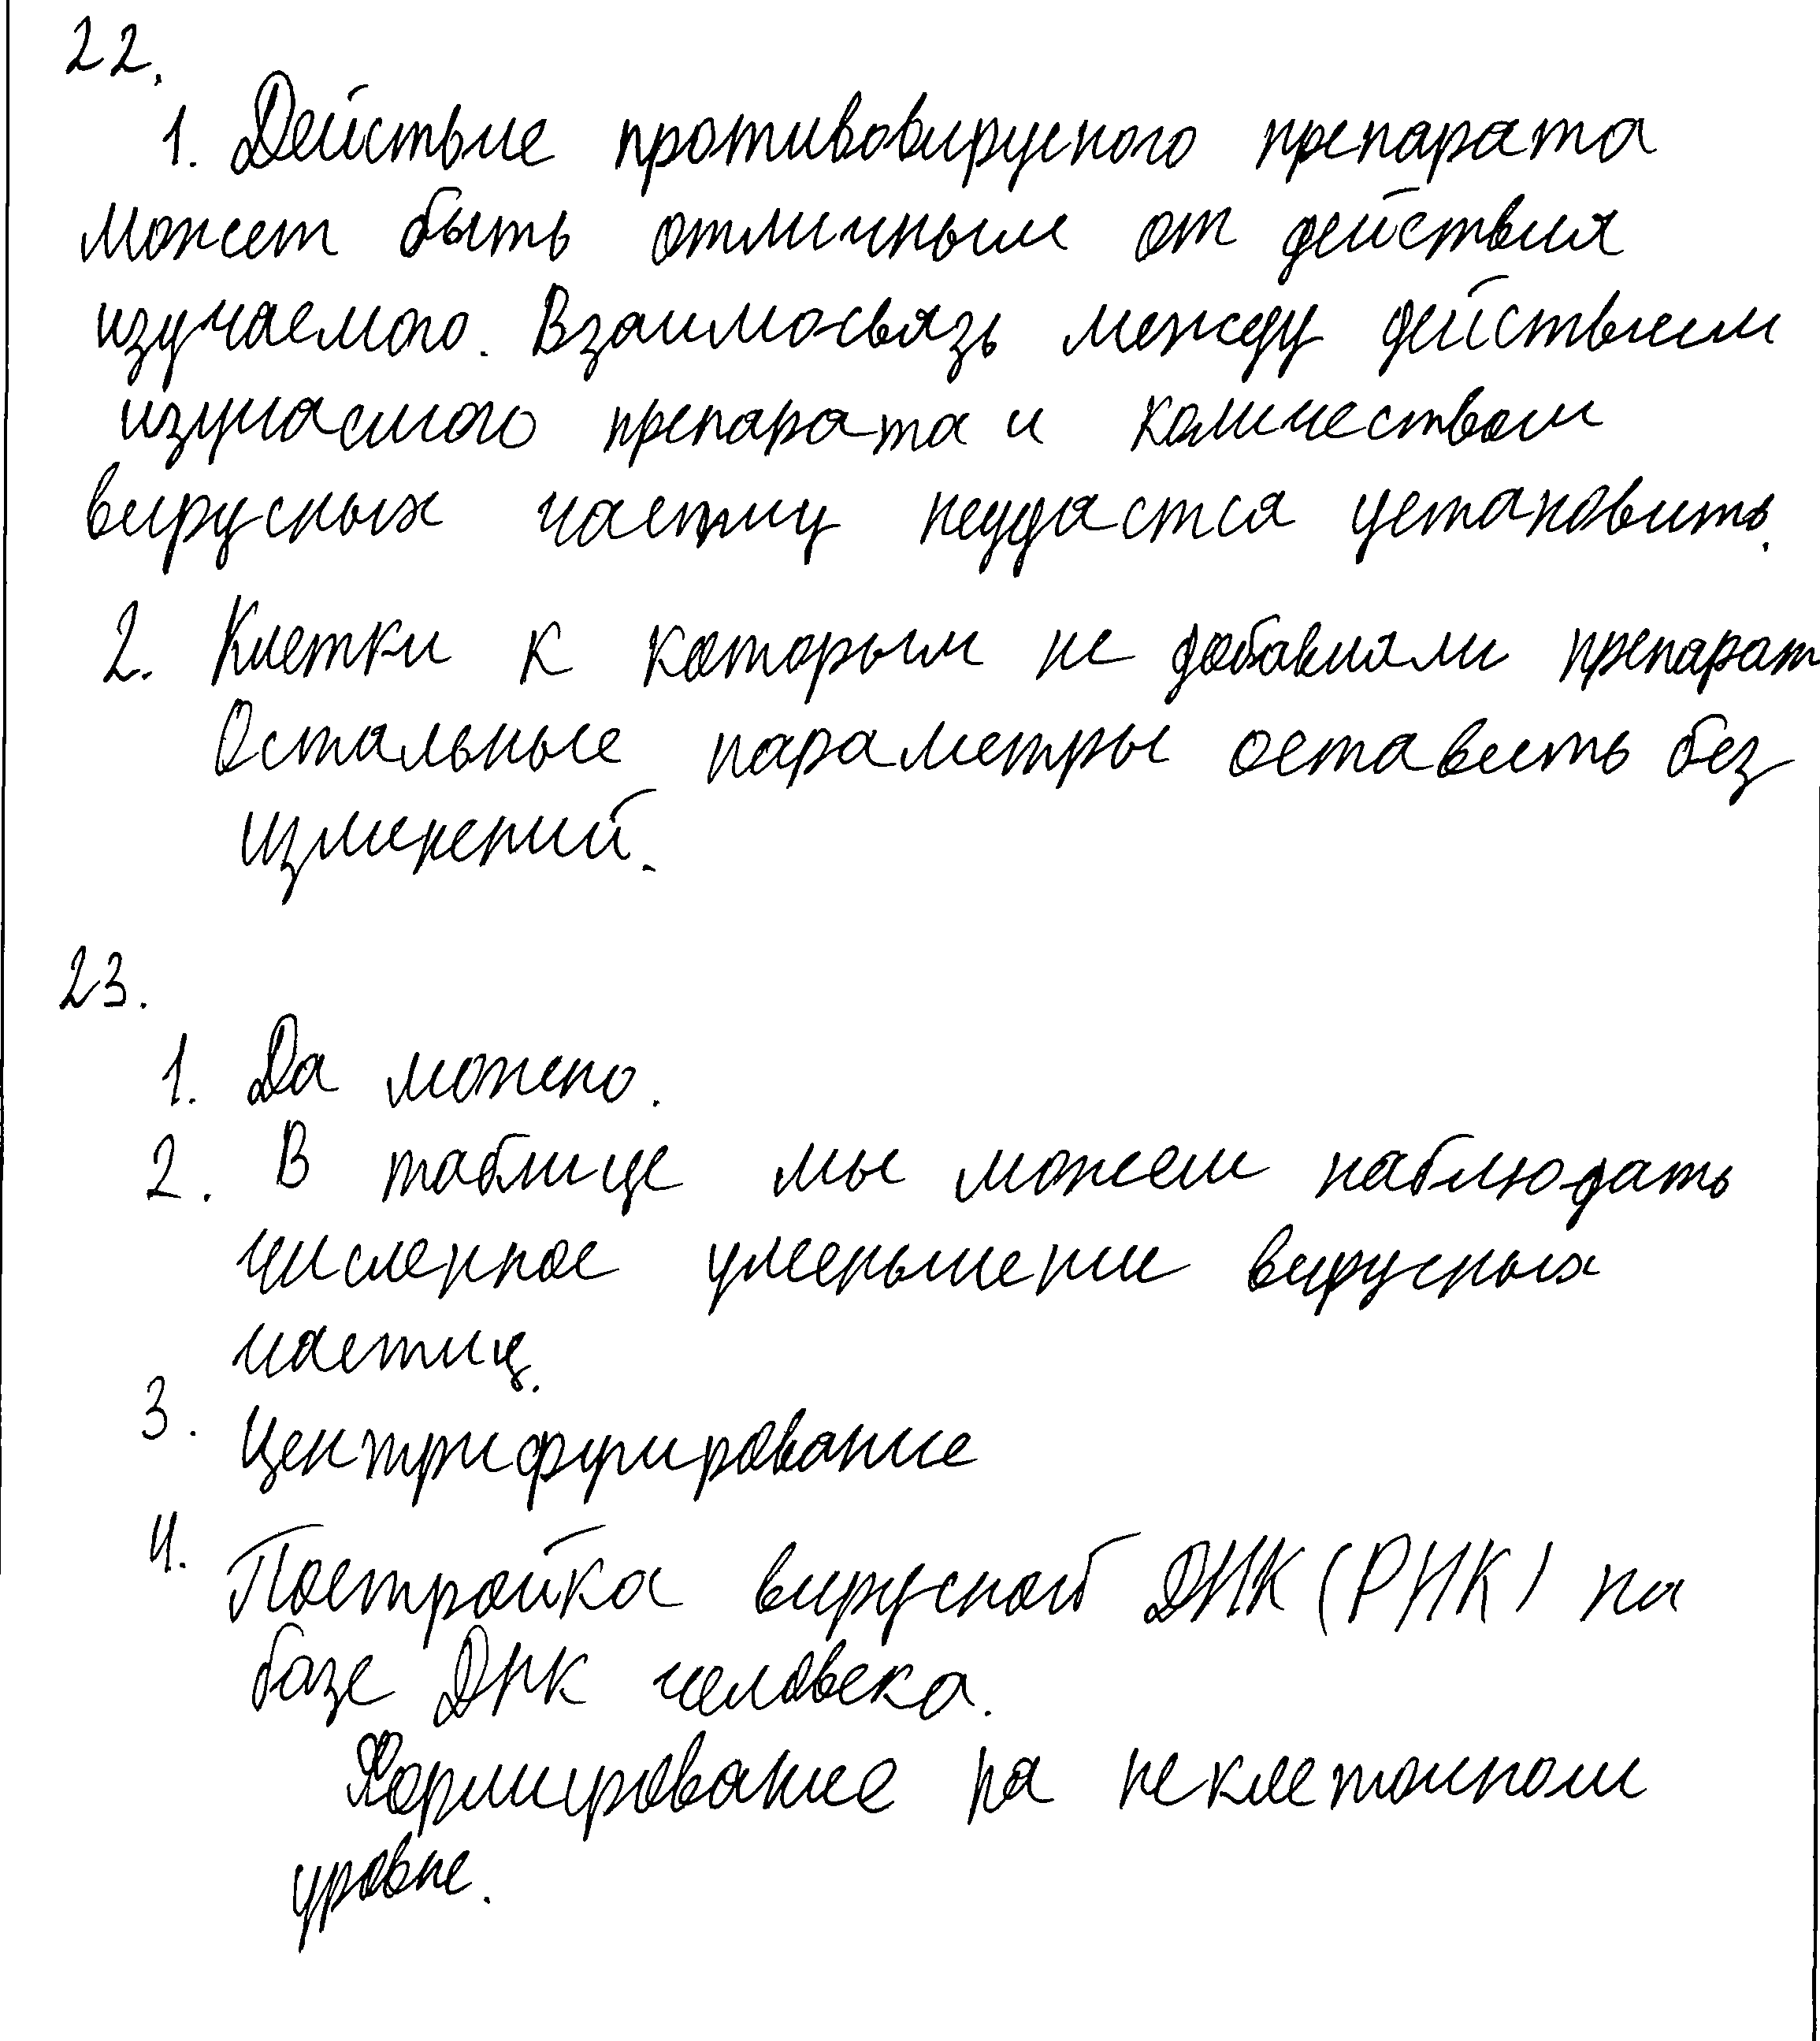 22.
1. Действие противовирусного препарата
может быть отличным от действия
изучаемого. Взаимосвязь между действием
изучаемого препарата и количеством
вирусных частиц неудастся установить.
2. Клетки к которым не добавляли препарат
Остальные параметры оставить без
изменений.
23.
1. Да можно.
2. В таблице мы можем наблюдать
численное уменьшение вирусных
частиц.
3. Центрифугирование
4. Постройка вирусной ДНК (РНК) на
базе ДНК человека.
Формирование на неклеточном
уровне.